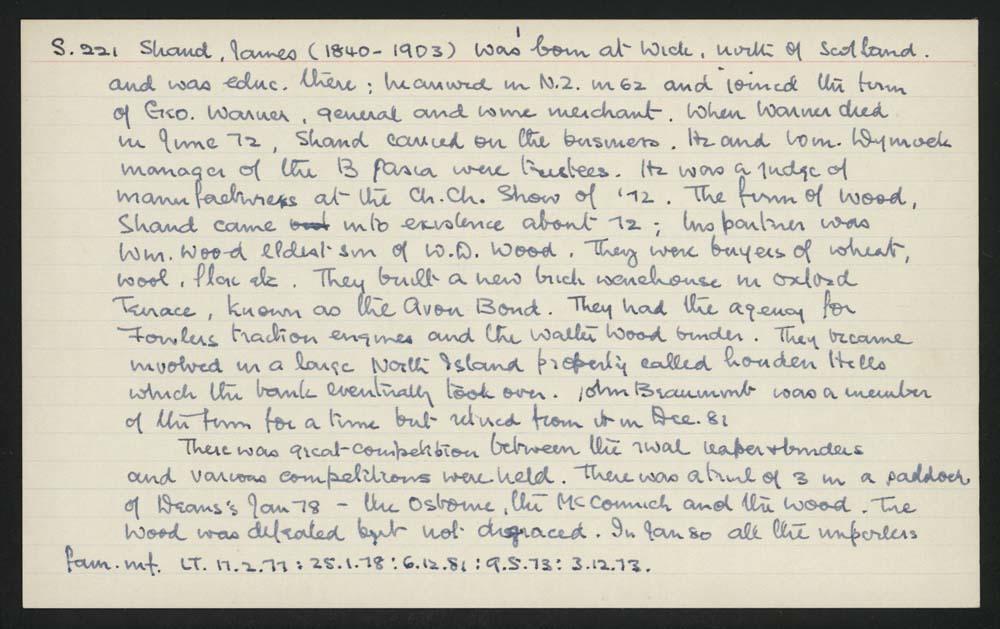 S.221 Shand, James (1840-1903) was born at Wick, north of Scotland.
and was educ. there; he arrived in N.Z. in 62 and joined the firm
of Geo. Warner, general and wine merchant. When Warner died
in June 72, Shand carried on the business. He and Wm. Wymock
manager of the B
were trustees. He was a judge of
manufactures at the Ch.Ch. Show of '72. The firm of Wood,
Shand came into existence about 72; his partner was
Wm. Wood eldest son of W.D. Wood. They were buyers of wheat,
wool, flax etc. They built a new brick warehouse in Oxford
Terrace, known as the Avon Bond. They had the agency for
Fowlers traction engines and the Walter Wood binder. They became
involved in a large North Island property called
Hills
which the bank eventually took over. John Beaumont was a member
of the firm for a time but retired from it in Dec. 81
There was great competition between the rival reaper & binders
and various competitions were held. There was a trial of 3 in a paddock
of Deans's Jan 78 - the Osborne, the McCormick and the Wood. The
Wood was defeated but not disgraced. In Jan 80 all the importers
fam. inf. LT. 17.2.77: 25.1.78: 6.12.81: 9.5.73: 3.12.73.